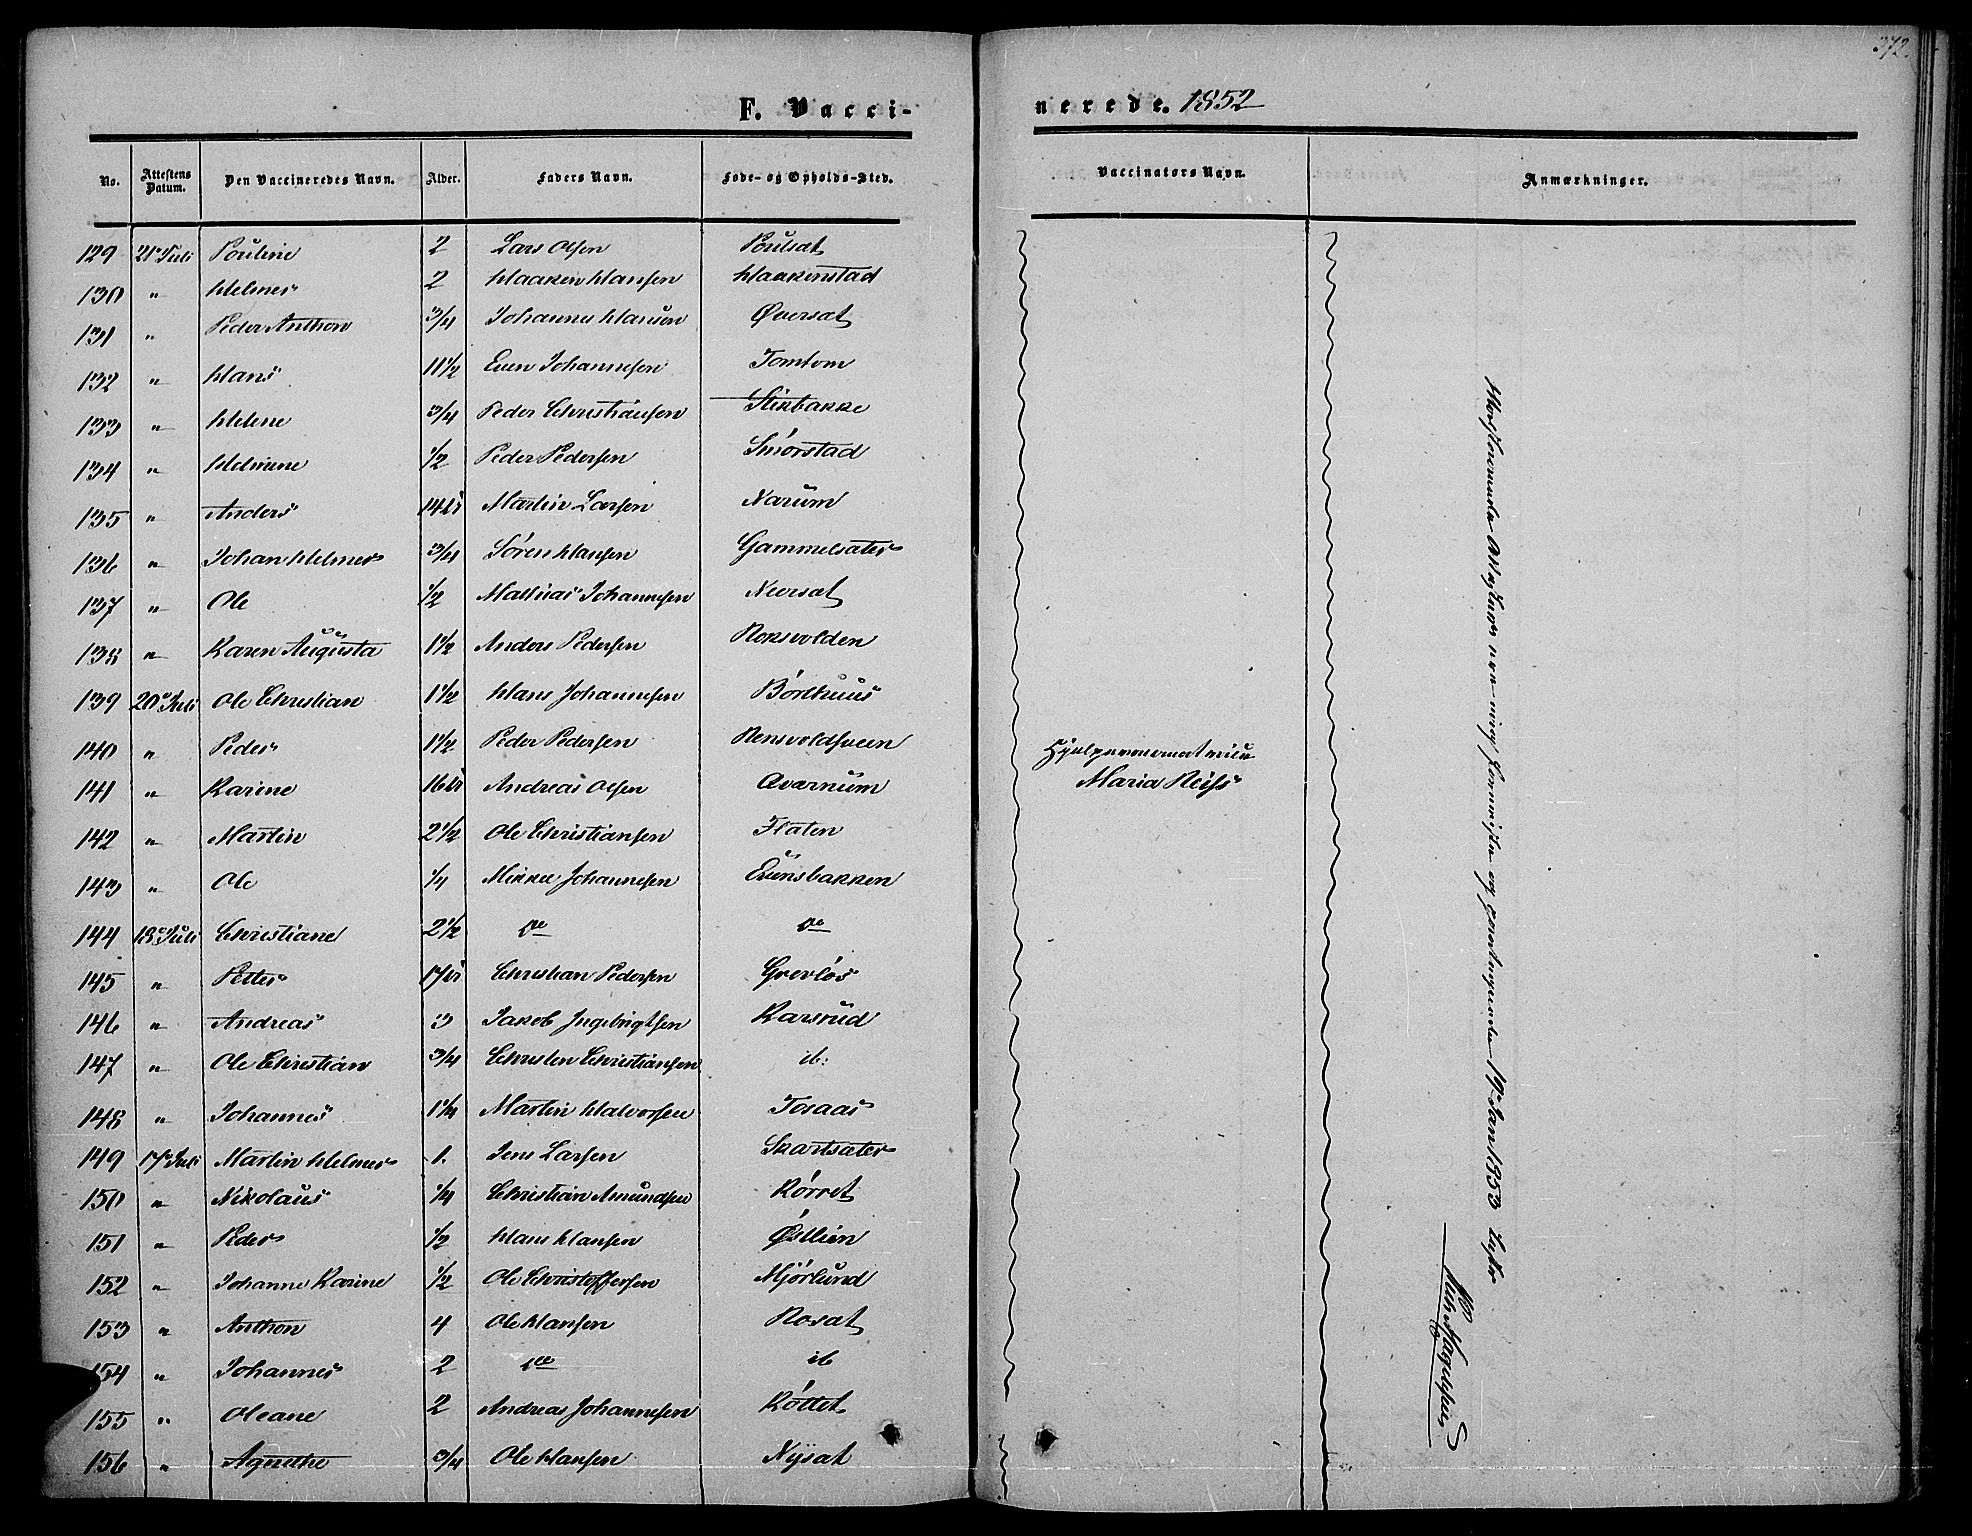 372.
F. Vacci-
nerede. 1852
No. Attestens Datum. Den Vaccineredes Navn. Alder. Faders Navn. Føde- og Opholds-Sted. Vaccinators Navn. Anmærkninger.
129 21 Juli Pouline 2 Lars Olsen Poulsat
130 " Helmer 2 Haaken Hansen Haakenstad
131 " Peder Anthon 3/4 Johannes Hansen Øversat
132 " Hans 11 1/2 Even Johannesen Tomtom
133 " Helene 3/4 Peder Christiansen Stikbakke
134 " Helmine 1/2 Peder Pedersen Smörstad
135 " Anders 14 Martin Larsen Narum
136 " Johan Helmer 3/4 Sören Hansen Gammelsater
137 " Ole 1/2 Mathias Johannesen Neersat
138 " Karen Augusta 1 1/2 Anders Pedersen Roksvolden
139 20 Juli Ole Christian 1 1/2 Hans Johannesen Börthuus
140 " Peder 1 1/2 Peder Pedersen
141 " Karine 16 Andreas Olsen Qvarnum
142 " Martin 2 1/2 Ole Christiansen Flaten
143 " Ole 1/4 Mikkel Johannesen Evensbakken
144 18 Juli Christiane 2 1/2 do do
145 " Petter 17 Christian Pedersen Grevlös
146 " Andreas 3 Jakob Ingebrigtsen Karsrud
147 " Ole Christian 3/4 Christen Christiansen ib:
148 " Johannes 1 1/4 Martin Halvorsen Toraas
149 17 Juli Martin Helmer 1. Jens Larsen Skartsæter
150 " Nikolaus 1/4 Christian Amundsen Körret
151 " Peder 1/2 Hans Hansen Østlien
152 " Johanne Karine 1/2 Ole Christoffersen Mjörlund
153 " Anthon 4 Ole Hansen Rosat
154 " Johannes 2 do ib
155 " Oleane 2 Andreas Johannesen Köttet
156 " Agnethe 3/4 Ole Hansen Nysat
Maria Reiss
og 19 Jan 1853